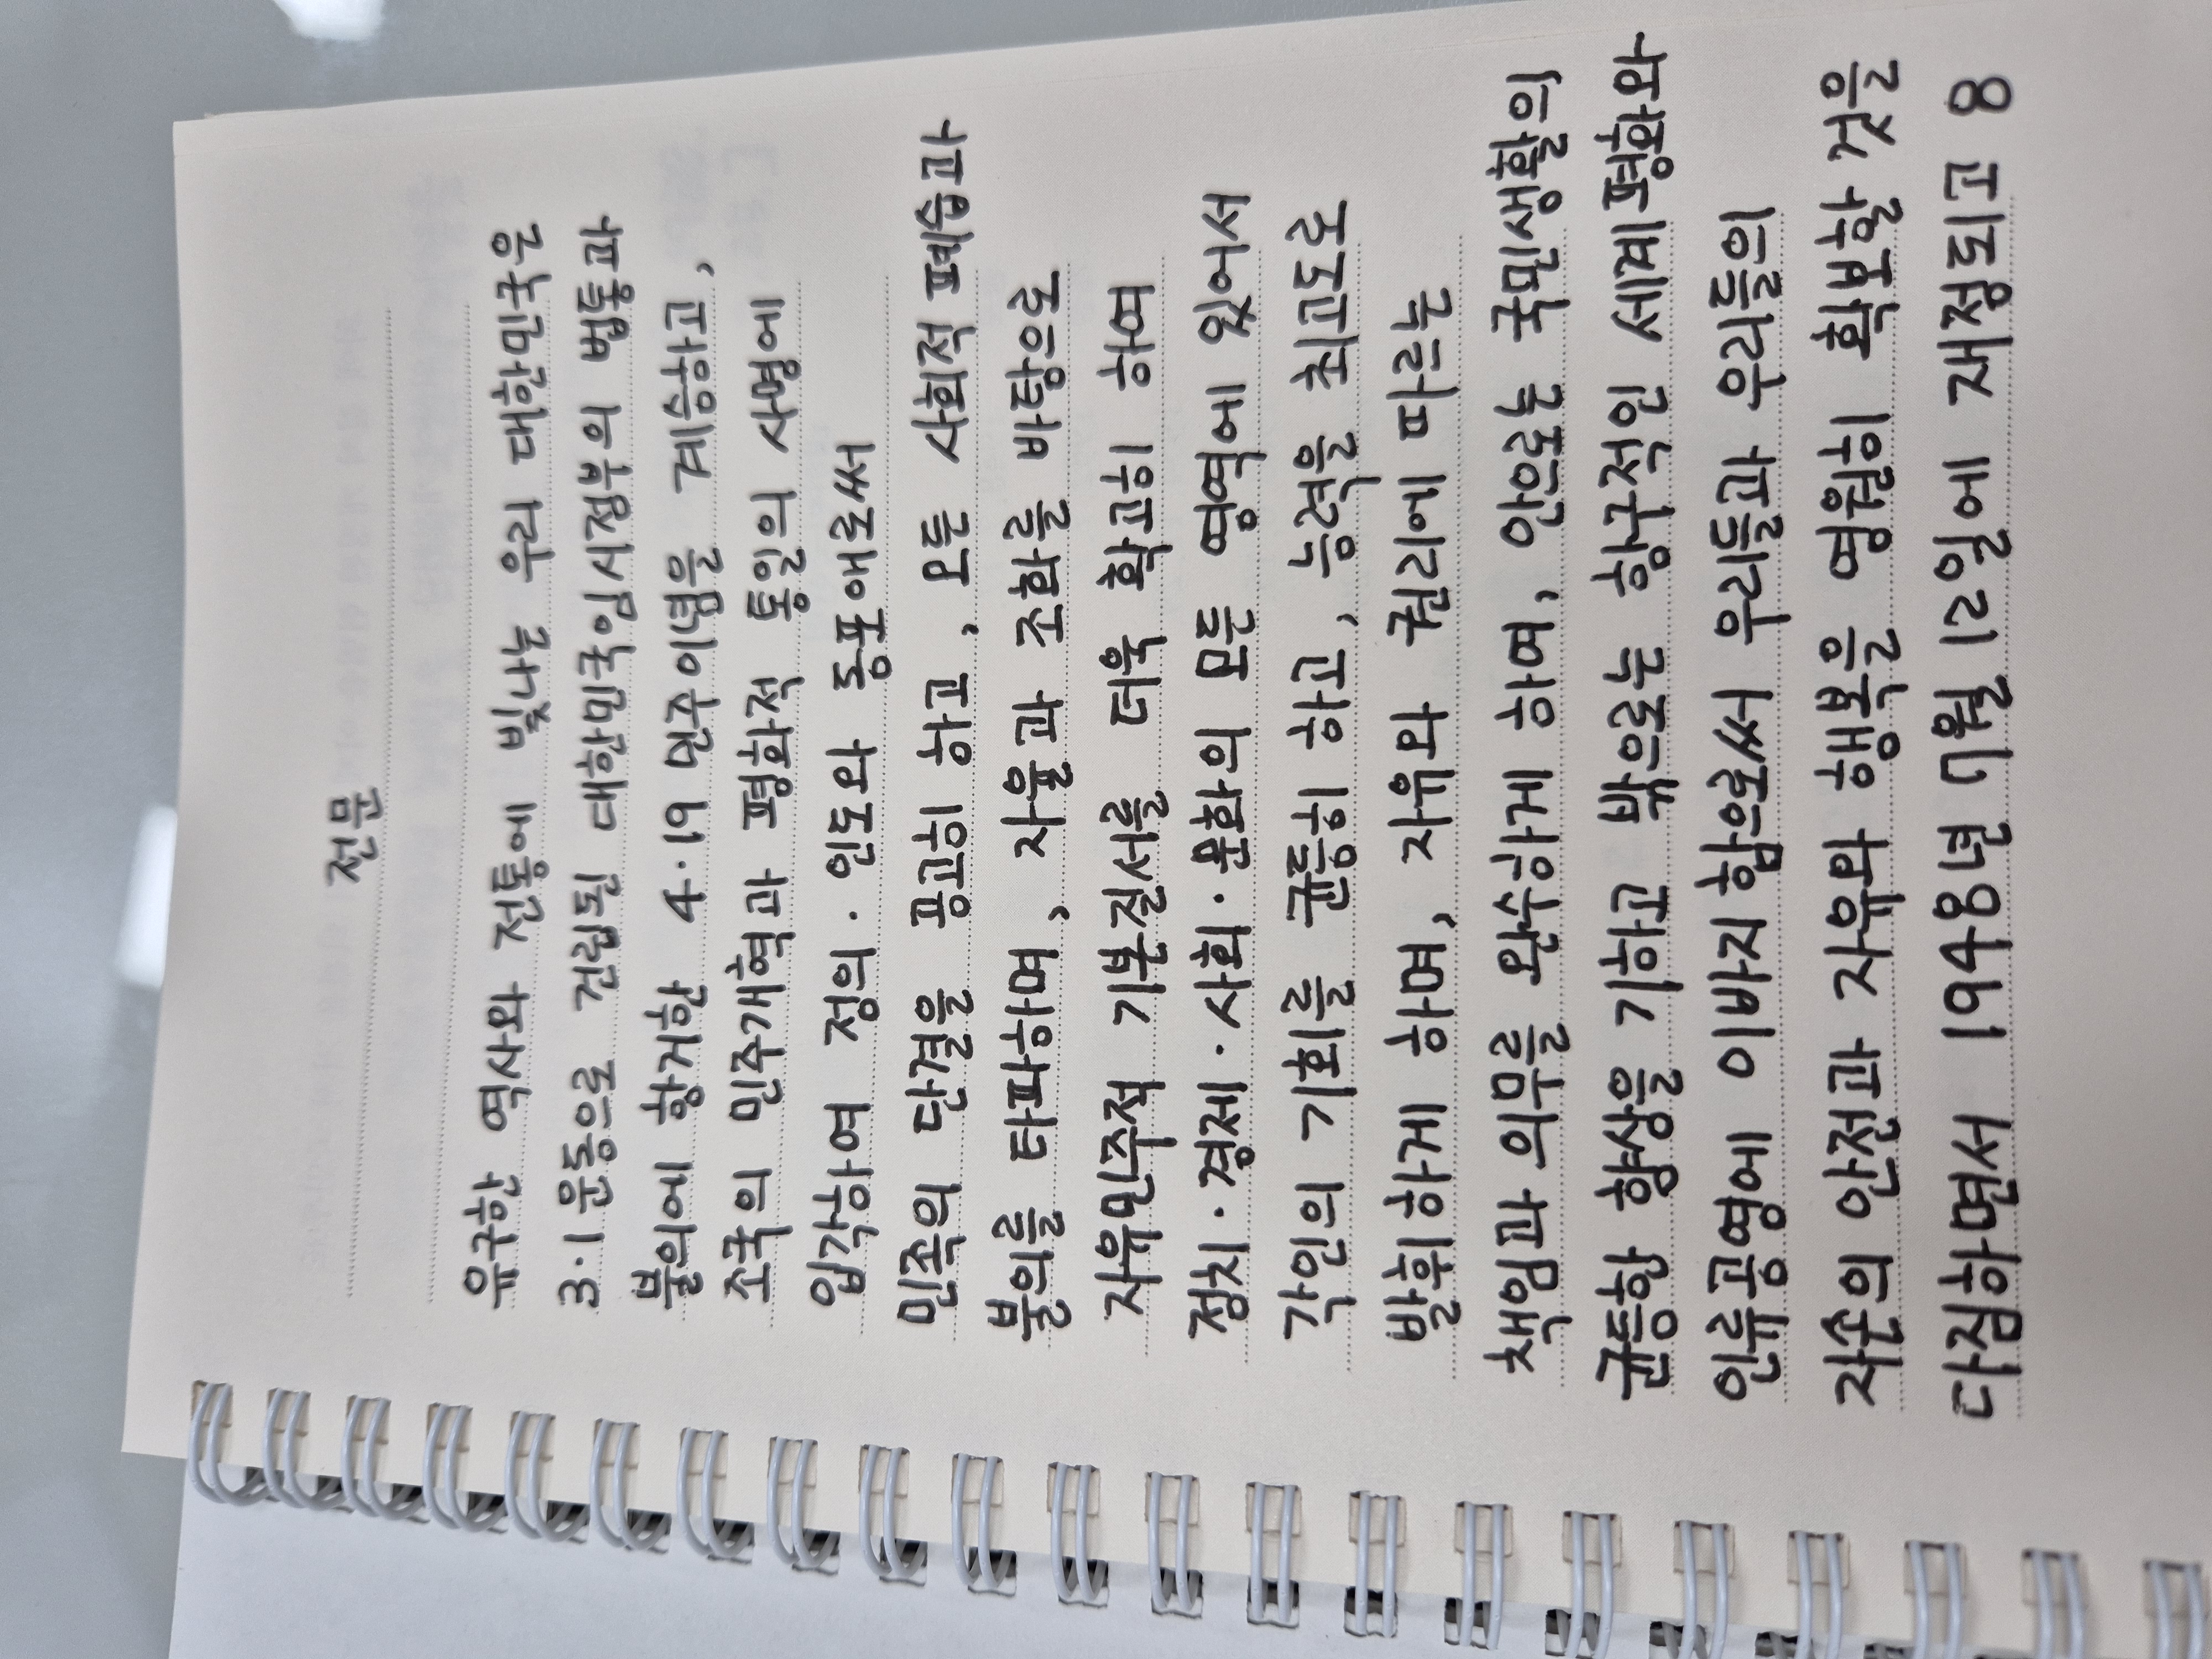 전문
유구한 역사와 전통에 빛나는 우리 대한민국은
3·1운동으로 건립된 대한민국임시정부의 법통과
불의에 항거한 4·19 민주이념을 계승하고,
조국의 민주개혁과 평화적 통일의 사명에
입각하여 정의·인도와 동포애로써
민족의 단결을 공고히 하고, 모든 사회적 폐습과
불의를 타파하며, 자율과 조화를 바탕으로
자유민주적 기본질서를 더욱 확고히 하여
정치·경제·사회·문화의 모든 영역에 있어서
각인의 기회를 균등히 하고, 능력을 최고도로
발휘하게 하며, 자유와 권리에 따르는
책임과 의무를 완수하게 하여, 안으로는 국민생활의
균등한 향상을 기하고 밖으로는 항구적인 세계평화와
인류공영에 이바지함으로써 우리들과 우리들의
자손의 안전과 자유와 행복을 영원히 확보할 것을
다짐하면서 1948년 7월 12일에 제정되고 8